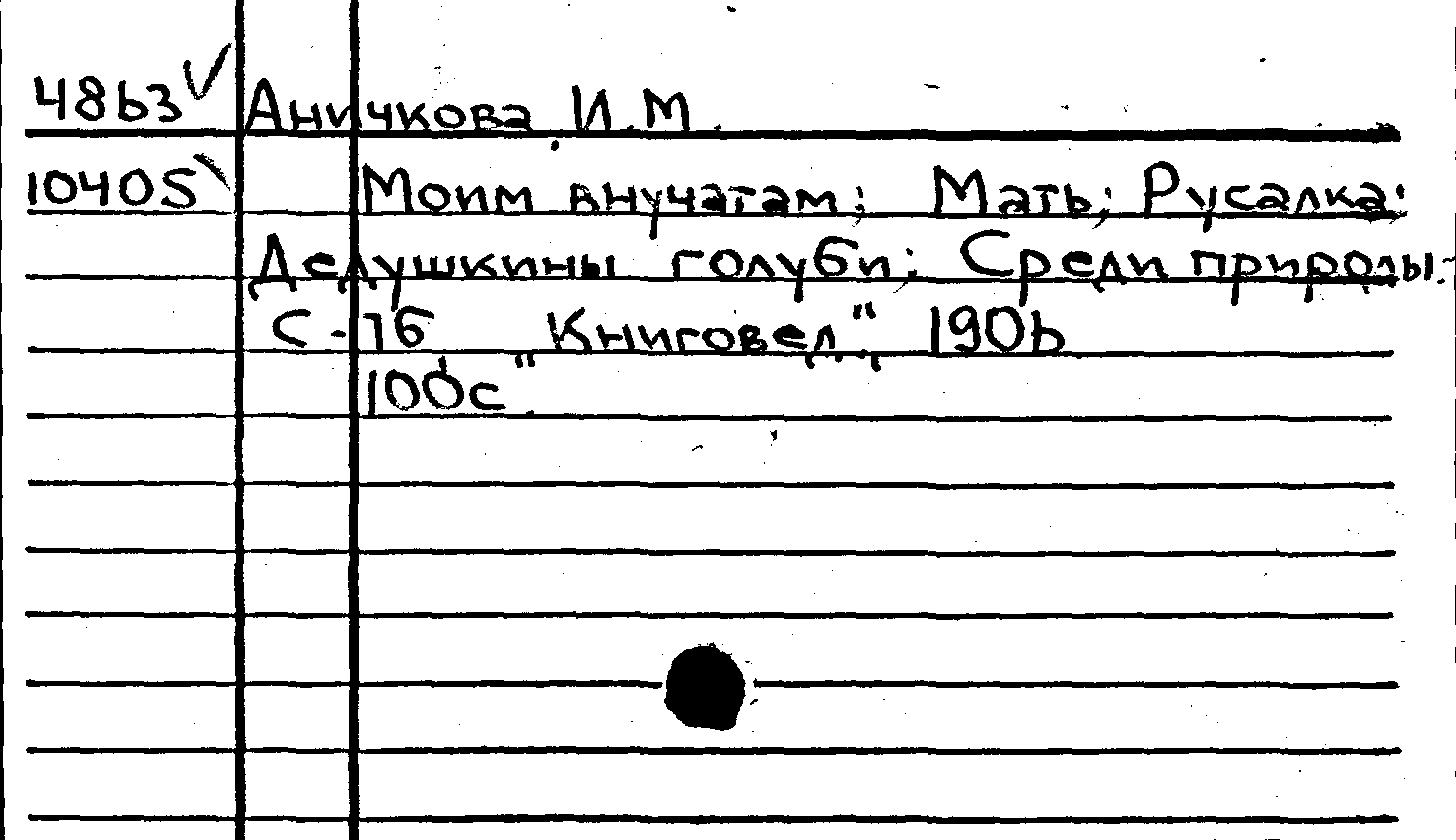 4863 Аничкова И.М.
10405 Моим внучатам; Мать; Русалка;
Дедушкины голуби; Среди природы.
С-Пб "Книговед", 1906
100с.